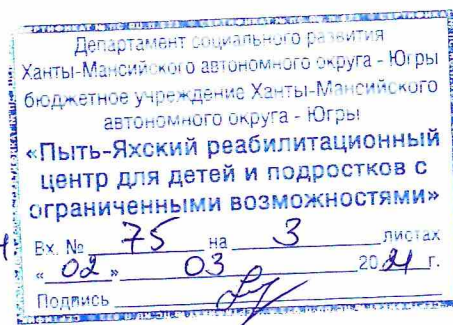 Департамент социального развития
Ханты-Мансийского автономного округа - Югры
бюджетное учреждение Ханты-Мансийского
автономного округа - Югры
«Пыть-Яхский реабилитационный
центр для детей и подростков с
ограниченными возможностями»
Вх. № 75 на 3 листах
« 02 » 03 2021 г.
Подпись